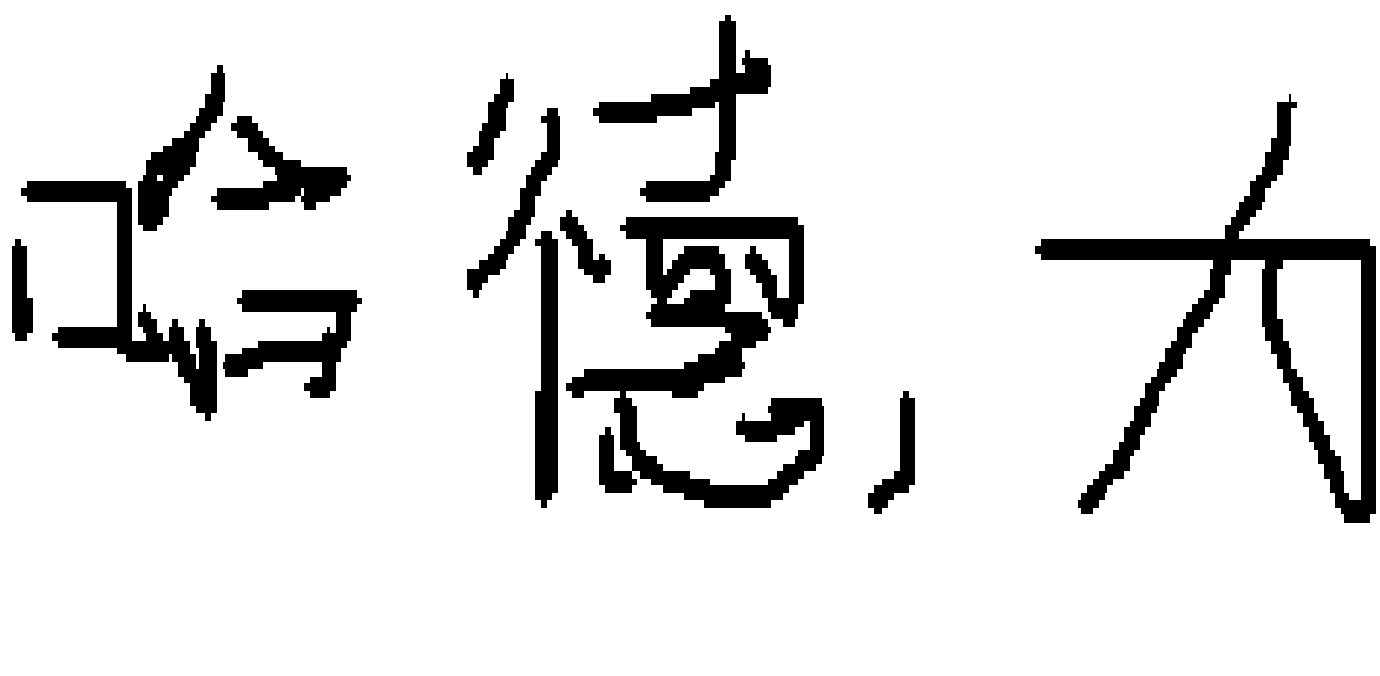 哈德,大